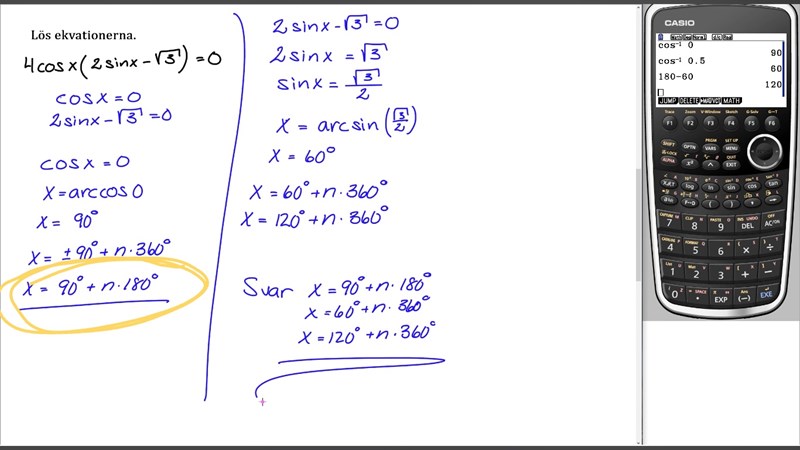 Lös ekvationerna.
4cosx(2sinx-√3)=0
cosx=0
2sinx-√3=0
cosx=0
x=arccos0
x= 90°
x= ±90°+n·360°
x= 90°+n·180°
2sinx-√3=0
2sinx=√3
sinx=√3/2
x=arcsin(√3/2)
x=60°
x=60°+n·360°
x=120°+n·360°
Svar x=90°+n·180°
x=60°+n·360°
x=120°+n·360°
CASIO
cos⁻¹ 0
90
cos⁻¹ 0.5
60
180-60
120
JUMP DELETE ►MAT/VCT MATH
F1 F2 F3 F4 F5 F6
SHIFT OPTN VARS MENU
ALPHA x² ^ EXIT
X,θ,T log ln sin cos tan
7 8 9 DEL AC/ON
4 5 6 × ÷
1 2 3 + -
0 . EXP (-) EXE